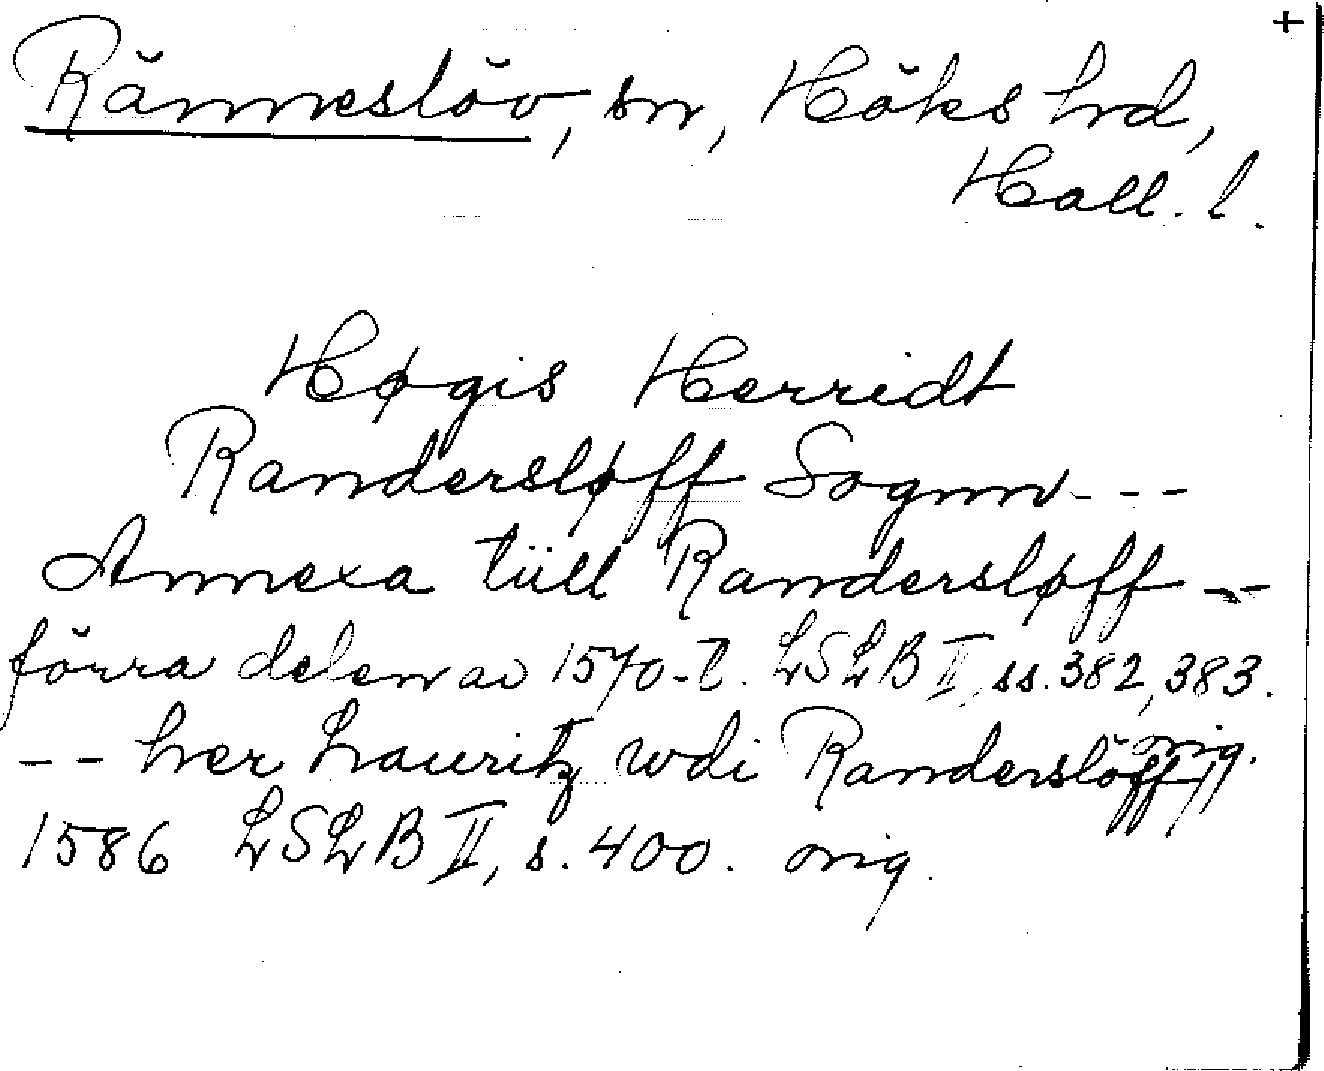 +
Ränneslöv, sn, Höks hd,
Hall. l.
Høgis Herridt
Randersløff Sognn---
Annexa tiill Randersløff --
förra delen av 1570-t. LSLB II, ss. 382, 383.
orig.
-- her Lauritz wdi Randerslöff
1586 LSLB II, s. 400. orig.